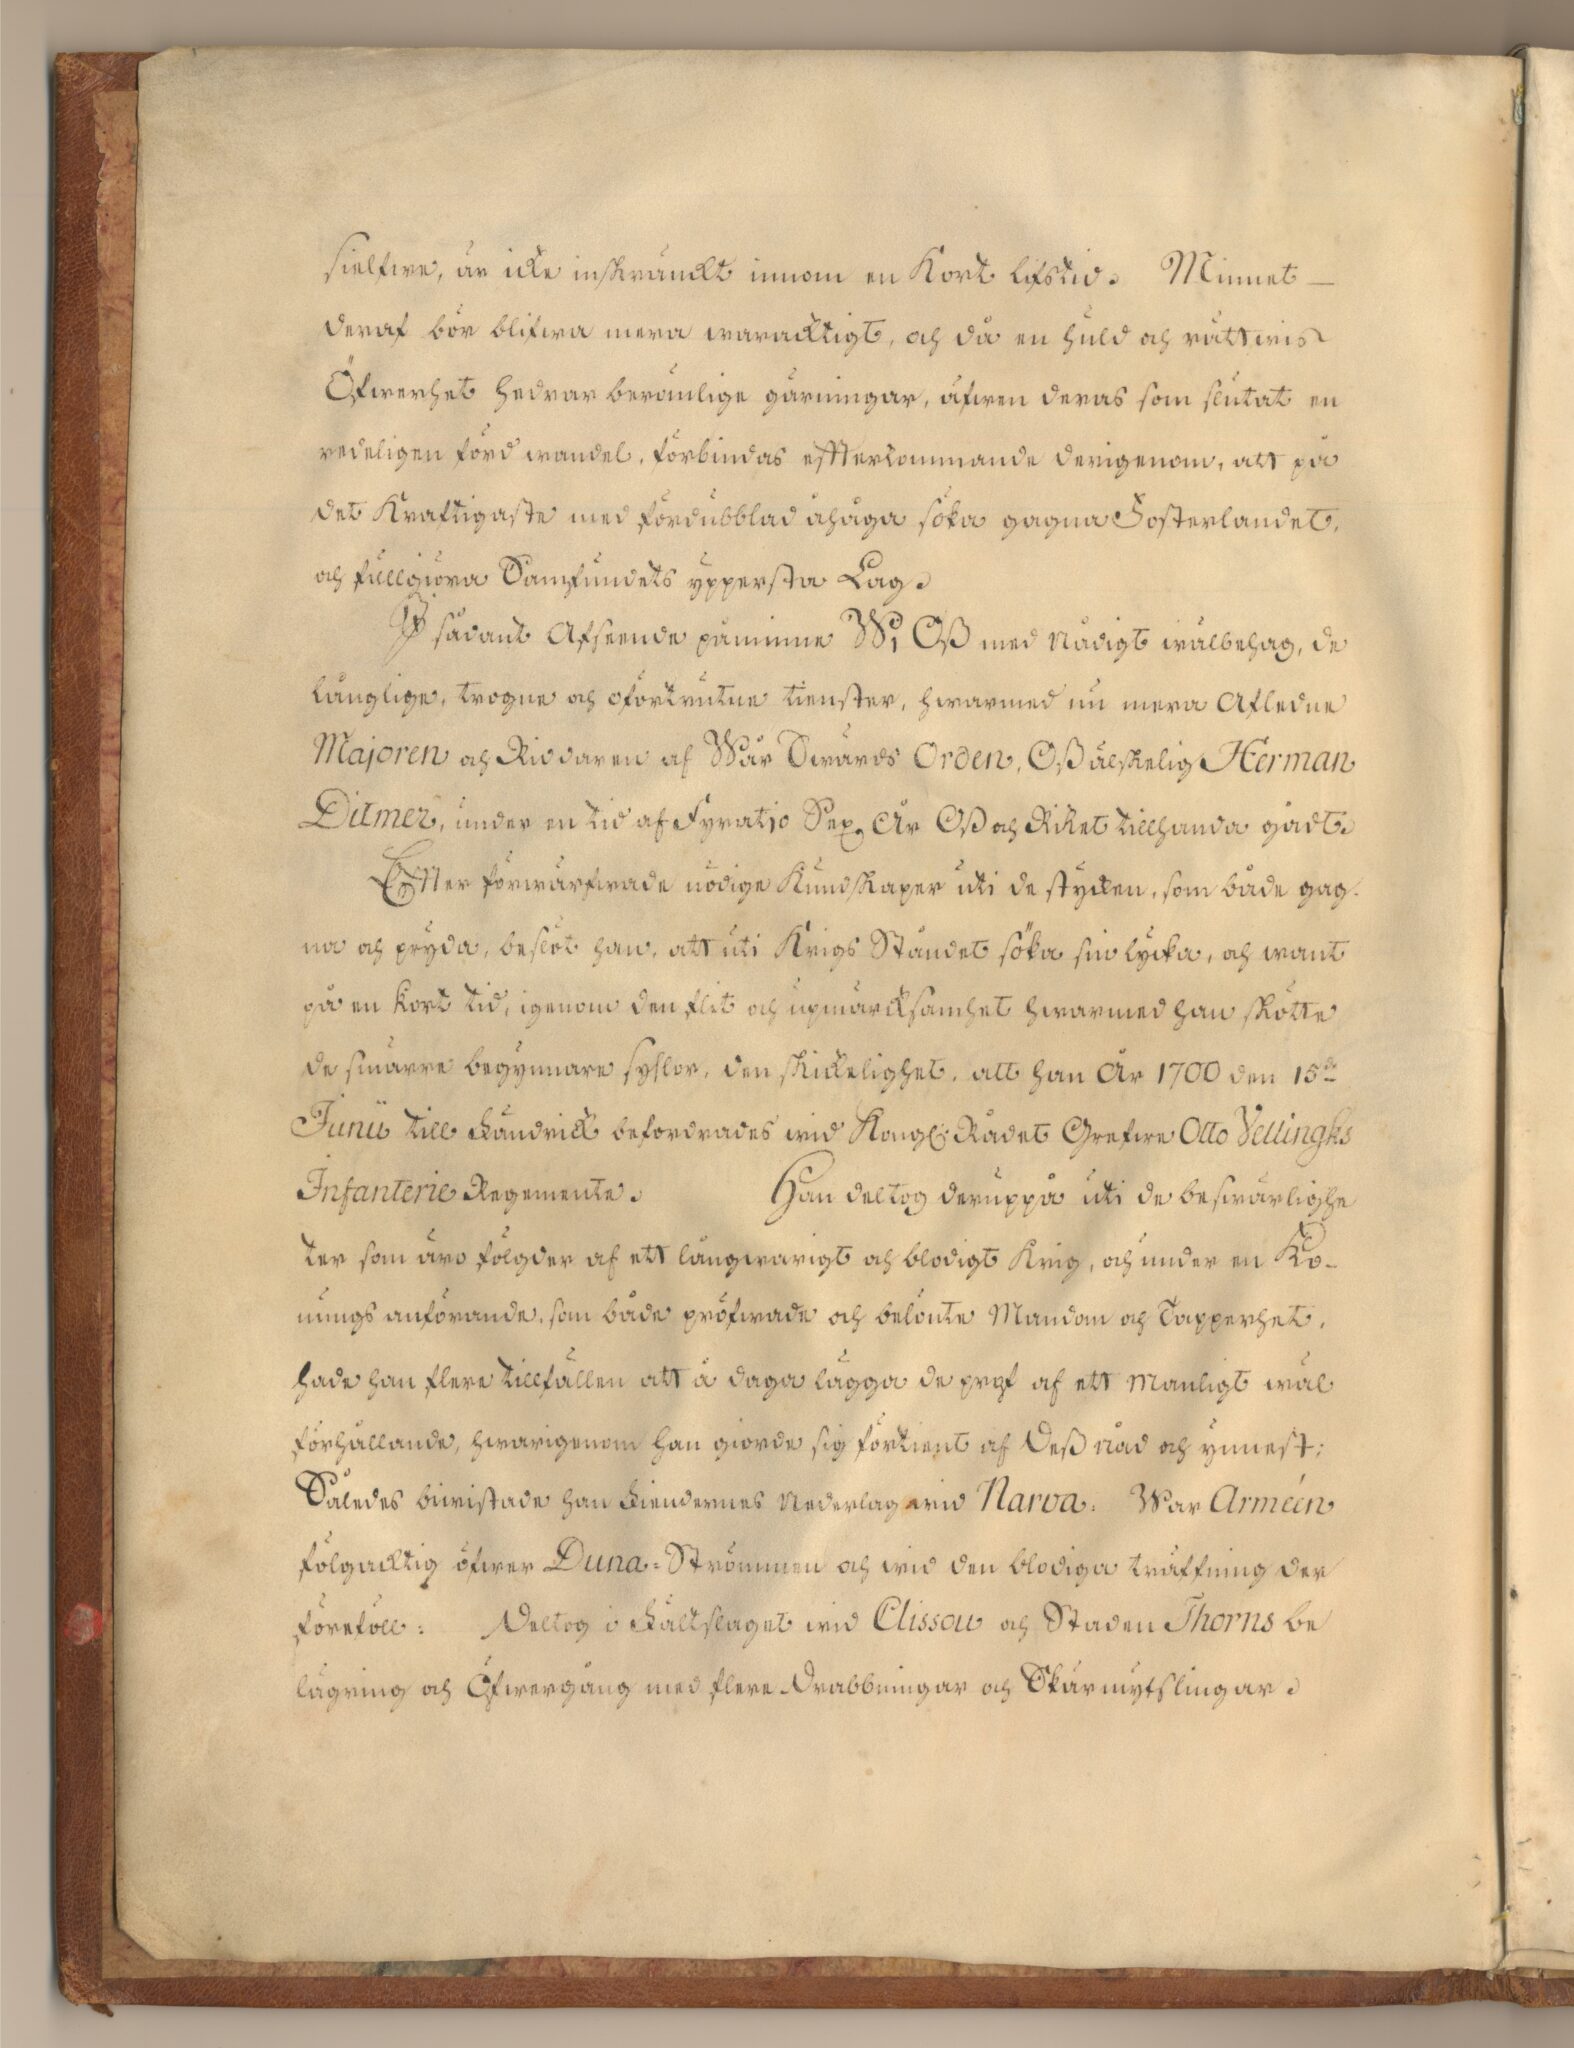 sielfwe, är icke inskränckt innom en Kort lifstid. Minnet
deraf bör blifwa mera waracktigt, och då en huld och rättwis
Öfwerhet hedrar berömlige gärningar, äfwen deras som slutat en
redeligen förd wandel, förbindas effterkommande derigenom, att på
det Kraftigaste med fördubblad åhåga söka gagna Fosterlandet,
och fullgiöra Samfundets yppersta Lag.
I sådant Afseende påminne Wi Oß med Nådigt wälbehag, de
långlige, trogne och oförtrutne tienster, hwarmed nu mera Afledne
Majoren och Riddaren af Wår Swärds Orden, Oß älskelig Herman
Ditmer, under en tid af Fyratjo Sex År Oß och Riket tillhanda gådt.
Effter förwärfwade nödige Kundskaper uti de stycken, som både gag-
na och pryda, beslöt han, att uti Krigs Ståndet söka sin lycka, och want
på en Kort tid, igenom den flit och upmärcksamhet hwarmed han skötte
de smärre begynnare syslor, den skickelighet, att han År 1700 den 15de
Junii till Fändrick befordrades wid Kongl: Rådet Grefwe Otto Vellingks
Infanterie Regemente. Han deltog deruppå uti de beswärlighe
ter som äro fölgder af ett långwarigt och blodigt Krig, och under en Ko-
nungs anförande, som både pröfwade och belönte Mandom och Tapperhet,
hade han flere tillfällen att å daga lägga de prof af ett Manligt wäl
förhållande, hwarigenom han giorde sig förtient af Deß nåd och ynnest:
Således biwistade han Fiendernes Nederlag wid Narva: War Arméen
fölgacktig öfwer Duna-Strömmen och wid den blodiga träffning der
föreföll: Deltog i Fältslaget wid Clissou och Staden Thorns be
lägring och Öfwergång med flere Drabbningar och Skärmytslingar.